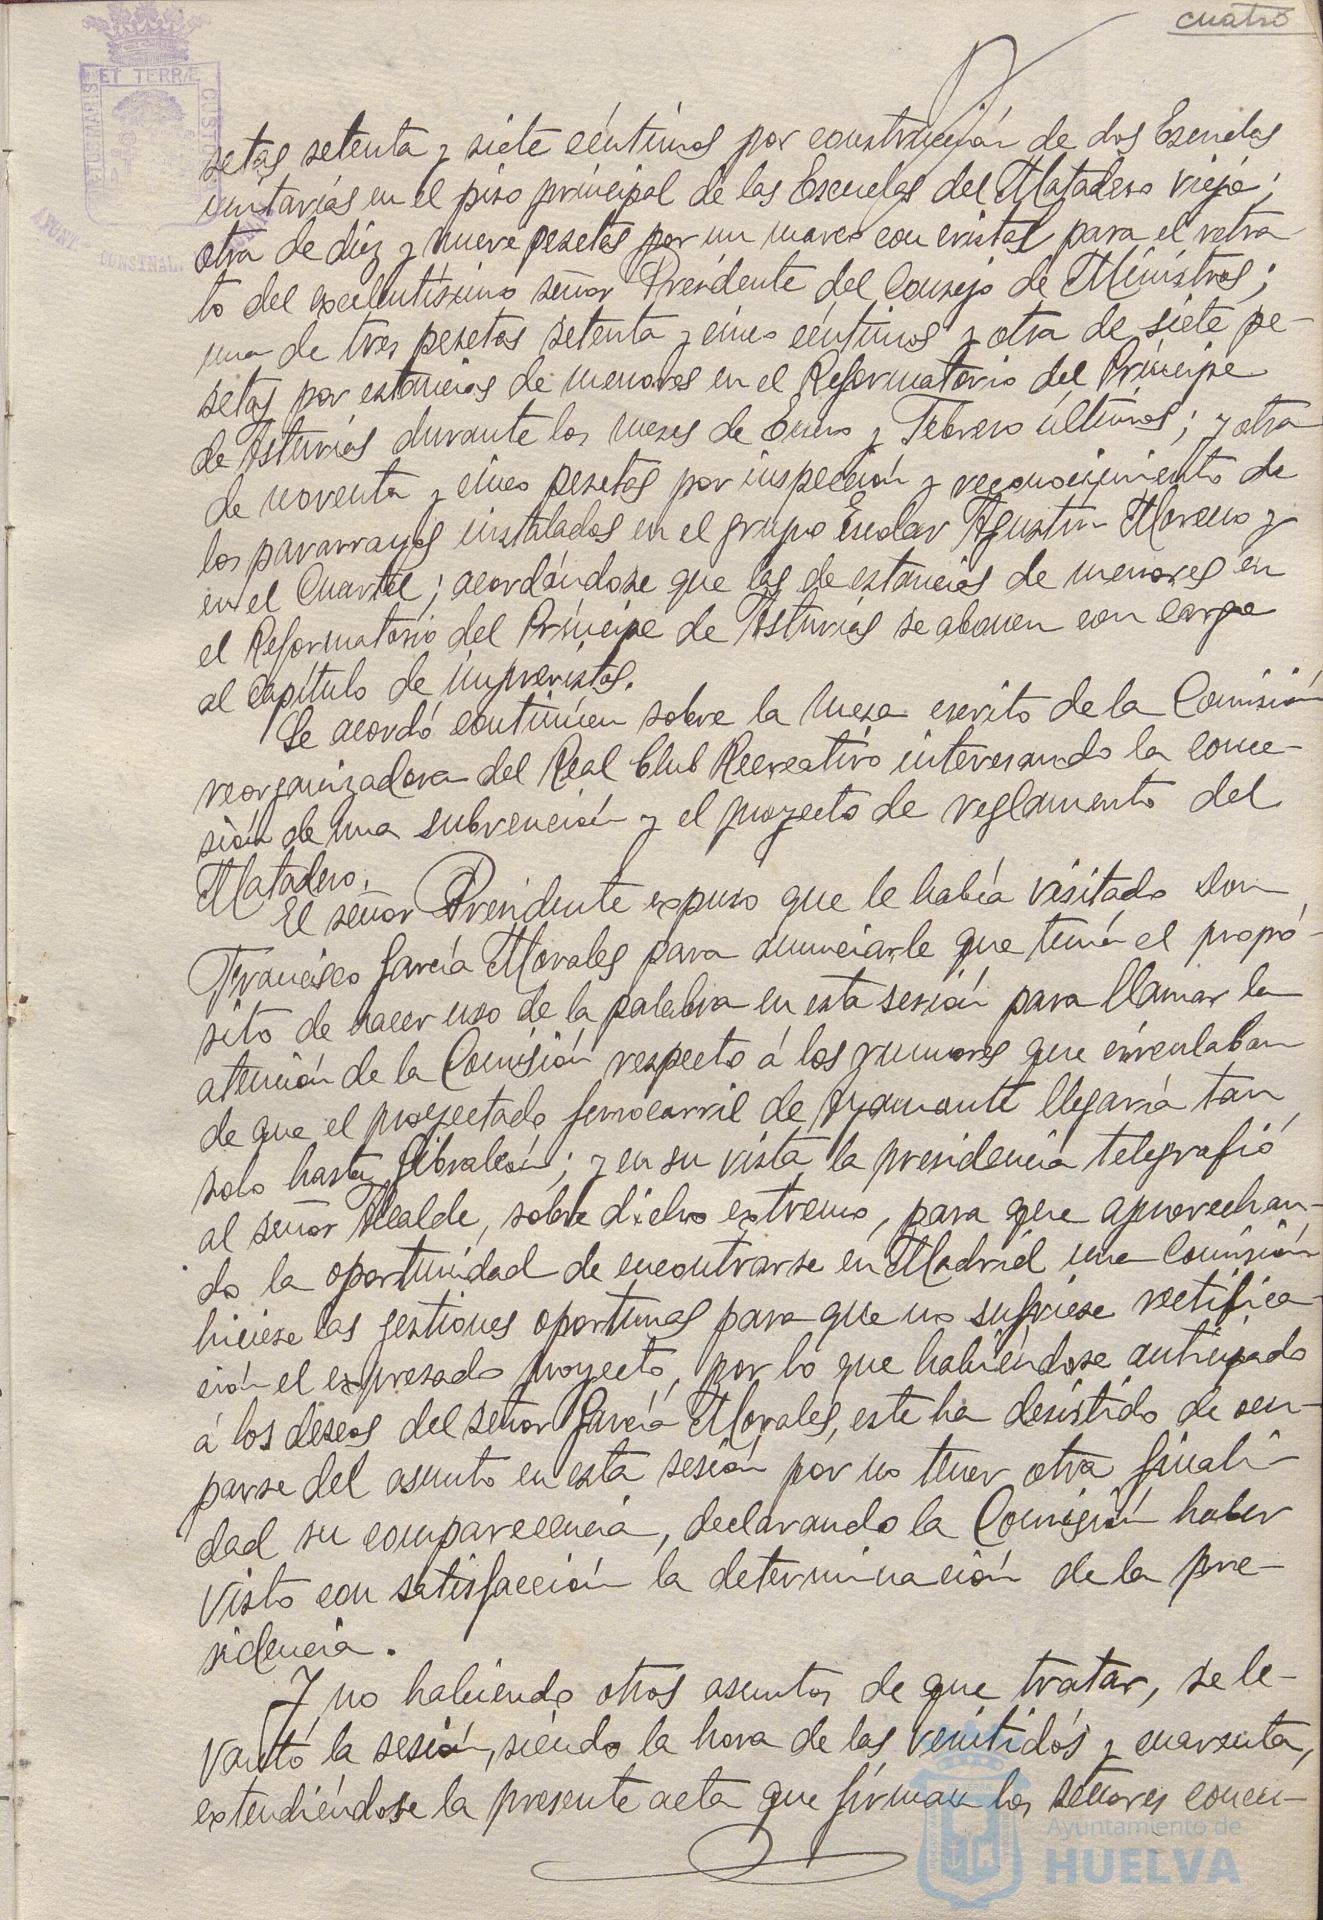 cuatro
ET TERRÆ
setas setenta y siete céntimos por construcción de dos Escuelas
unitarias en el piso principal de las Escuelas del Matadero viejo;
otra de diez y nueve pesetas por un marco con cristal para el retra-
to del excelentísimo señor Presidente del Consejo de Ministros;
una de tres pesetas setenta y cinco céntimos y otra de siete pe-
setas por estancias de menores en el Reformatorio del Príncipe
de Asturias durante los meses de Enero y Febrero últimos; y otra
de noventa y cinco pesetas por inspección y reconocimiento de
los pararrayos instalados en el grupo Escolar Agustin Moreno y
en el Cuartel; acordándose que las de estancias de menores en
el Reformatorio del Príncipe de Asturias se abonen con cargo
al capítulo de imprevistos.
Se acordó continúen sobre la mesa escrito de la Comisión
reorganizadora del Real Club Recreativo interesando la conce-
sión de una subvención y el proyecto de reglamento del
Matadero.
El señor Presidente expuso que le había visitado Don
Francisco García Morales para anunciarle que tenía el propó-
sito de hacer uso de la palabra en esta sesión para llamar la
atención de la Comisión respecto á los rumores que circulaban
de que el proyectado ferrocarril de Ayamonte llegaría tan
solo hasta Gibraleón; y en su vista, la presidencia telegrafió
al señor Alcalde, sobre dicho extremo, para que aprovechan-
do la oportunidad de encontrarse en Madrid una Comisión
hiciese las gestiones oportunas para que no sufriese rectifica-
ción el expresado proyecto, por lo que habiéndose anticipado
á los deseos del señor García Morales, este ha desistido de ocu-
parse del asunto en esta sesión por no tener otra finali-
dad su comparecencia, declarando la Comisión haber
visto con satisfacción la determinación de la pre-
sidencia.
Y no habiendo otros asuntos de que tratar, se le-
vantó la sesión, siendo la hora de las veintidós y cuarenta,
extendiéndose la presente acta que firman los señores concu-
Ayuntamiento de
HUELVA